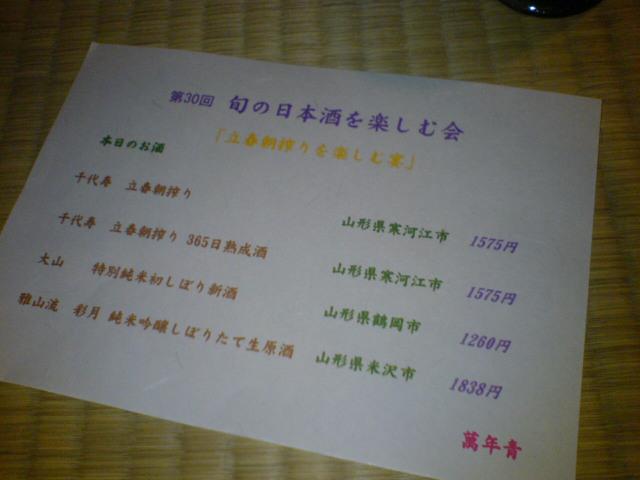 第30回 旬の日本酒を楽しむ会
「立春朝搾りを楽しむ宴」
本日のお酒
千代寿 立春朝搾り 山形県寒河江市 1575円
千代寿 立春朝搾り 365日熟成酒 山形県寒河江市 1575円
大山 特別純米初しぼり新酒 山形県鶴岡市 1260円
雅山流 彩月 純米吟醸しぼりたて生原酒 山形県米沢市 1838円
萬年青